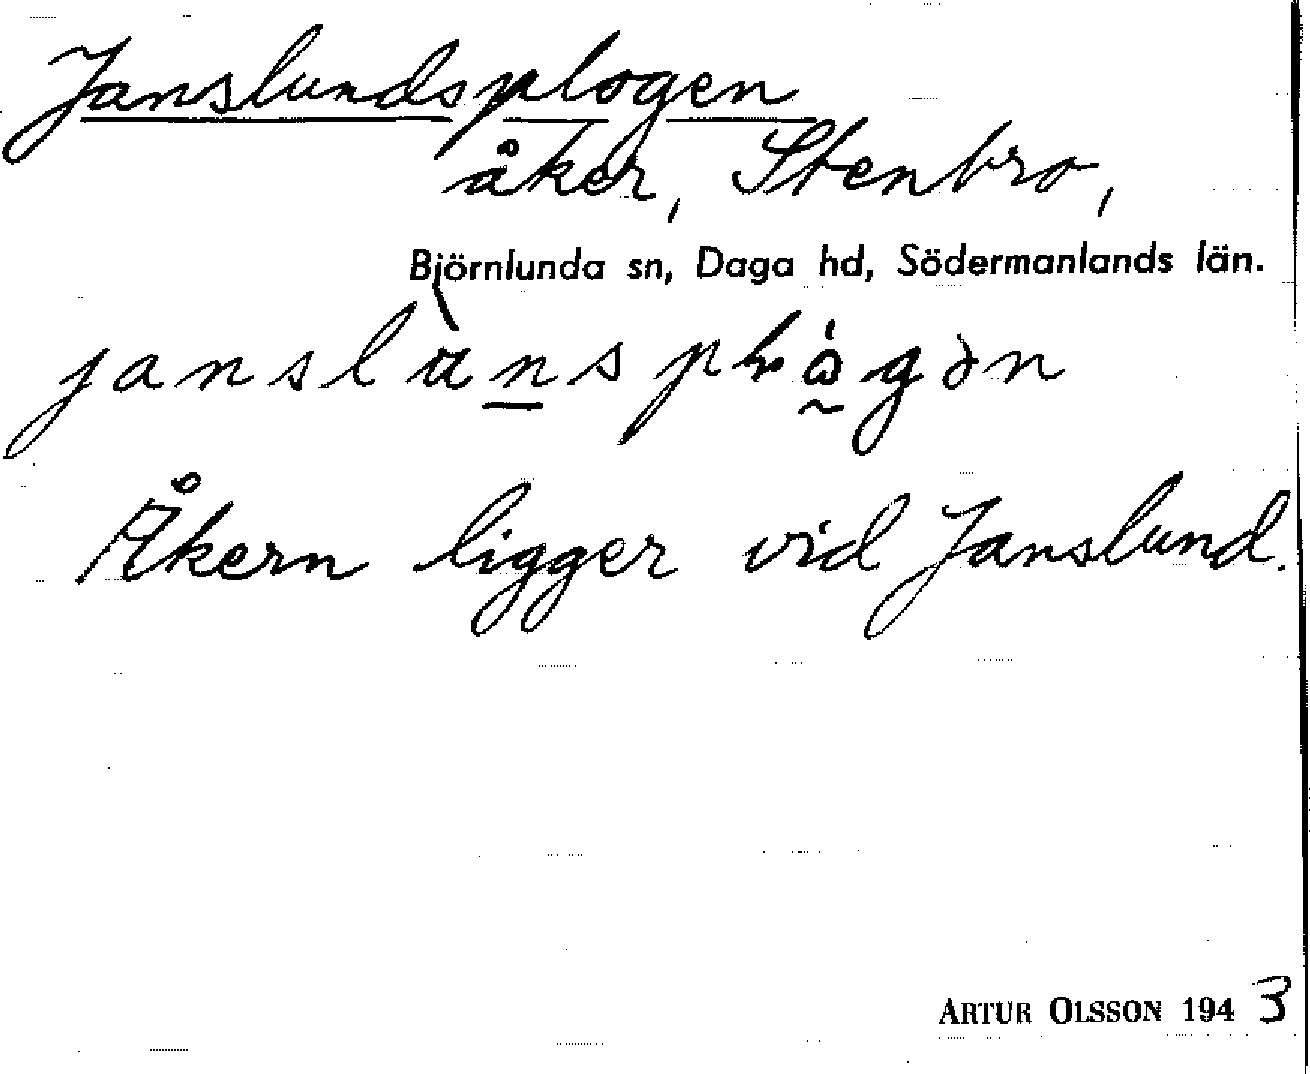 Janslundsplogen
åker, Stenbro,
Björnlunda sn, Daga hd, Södermanlands län.
Åkern ligger vid Janslund.
ARTUR OLSSON 1943